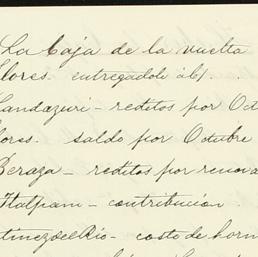 La Caja de la vuelta
lores. entregadole á b/.
andazuri - reditos por Oct
lores. saldo por Octubre
Beraza - reditos por renova
Tlalpam - contribución.
tinez del Rio - costo de horn